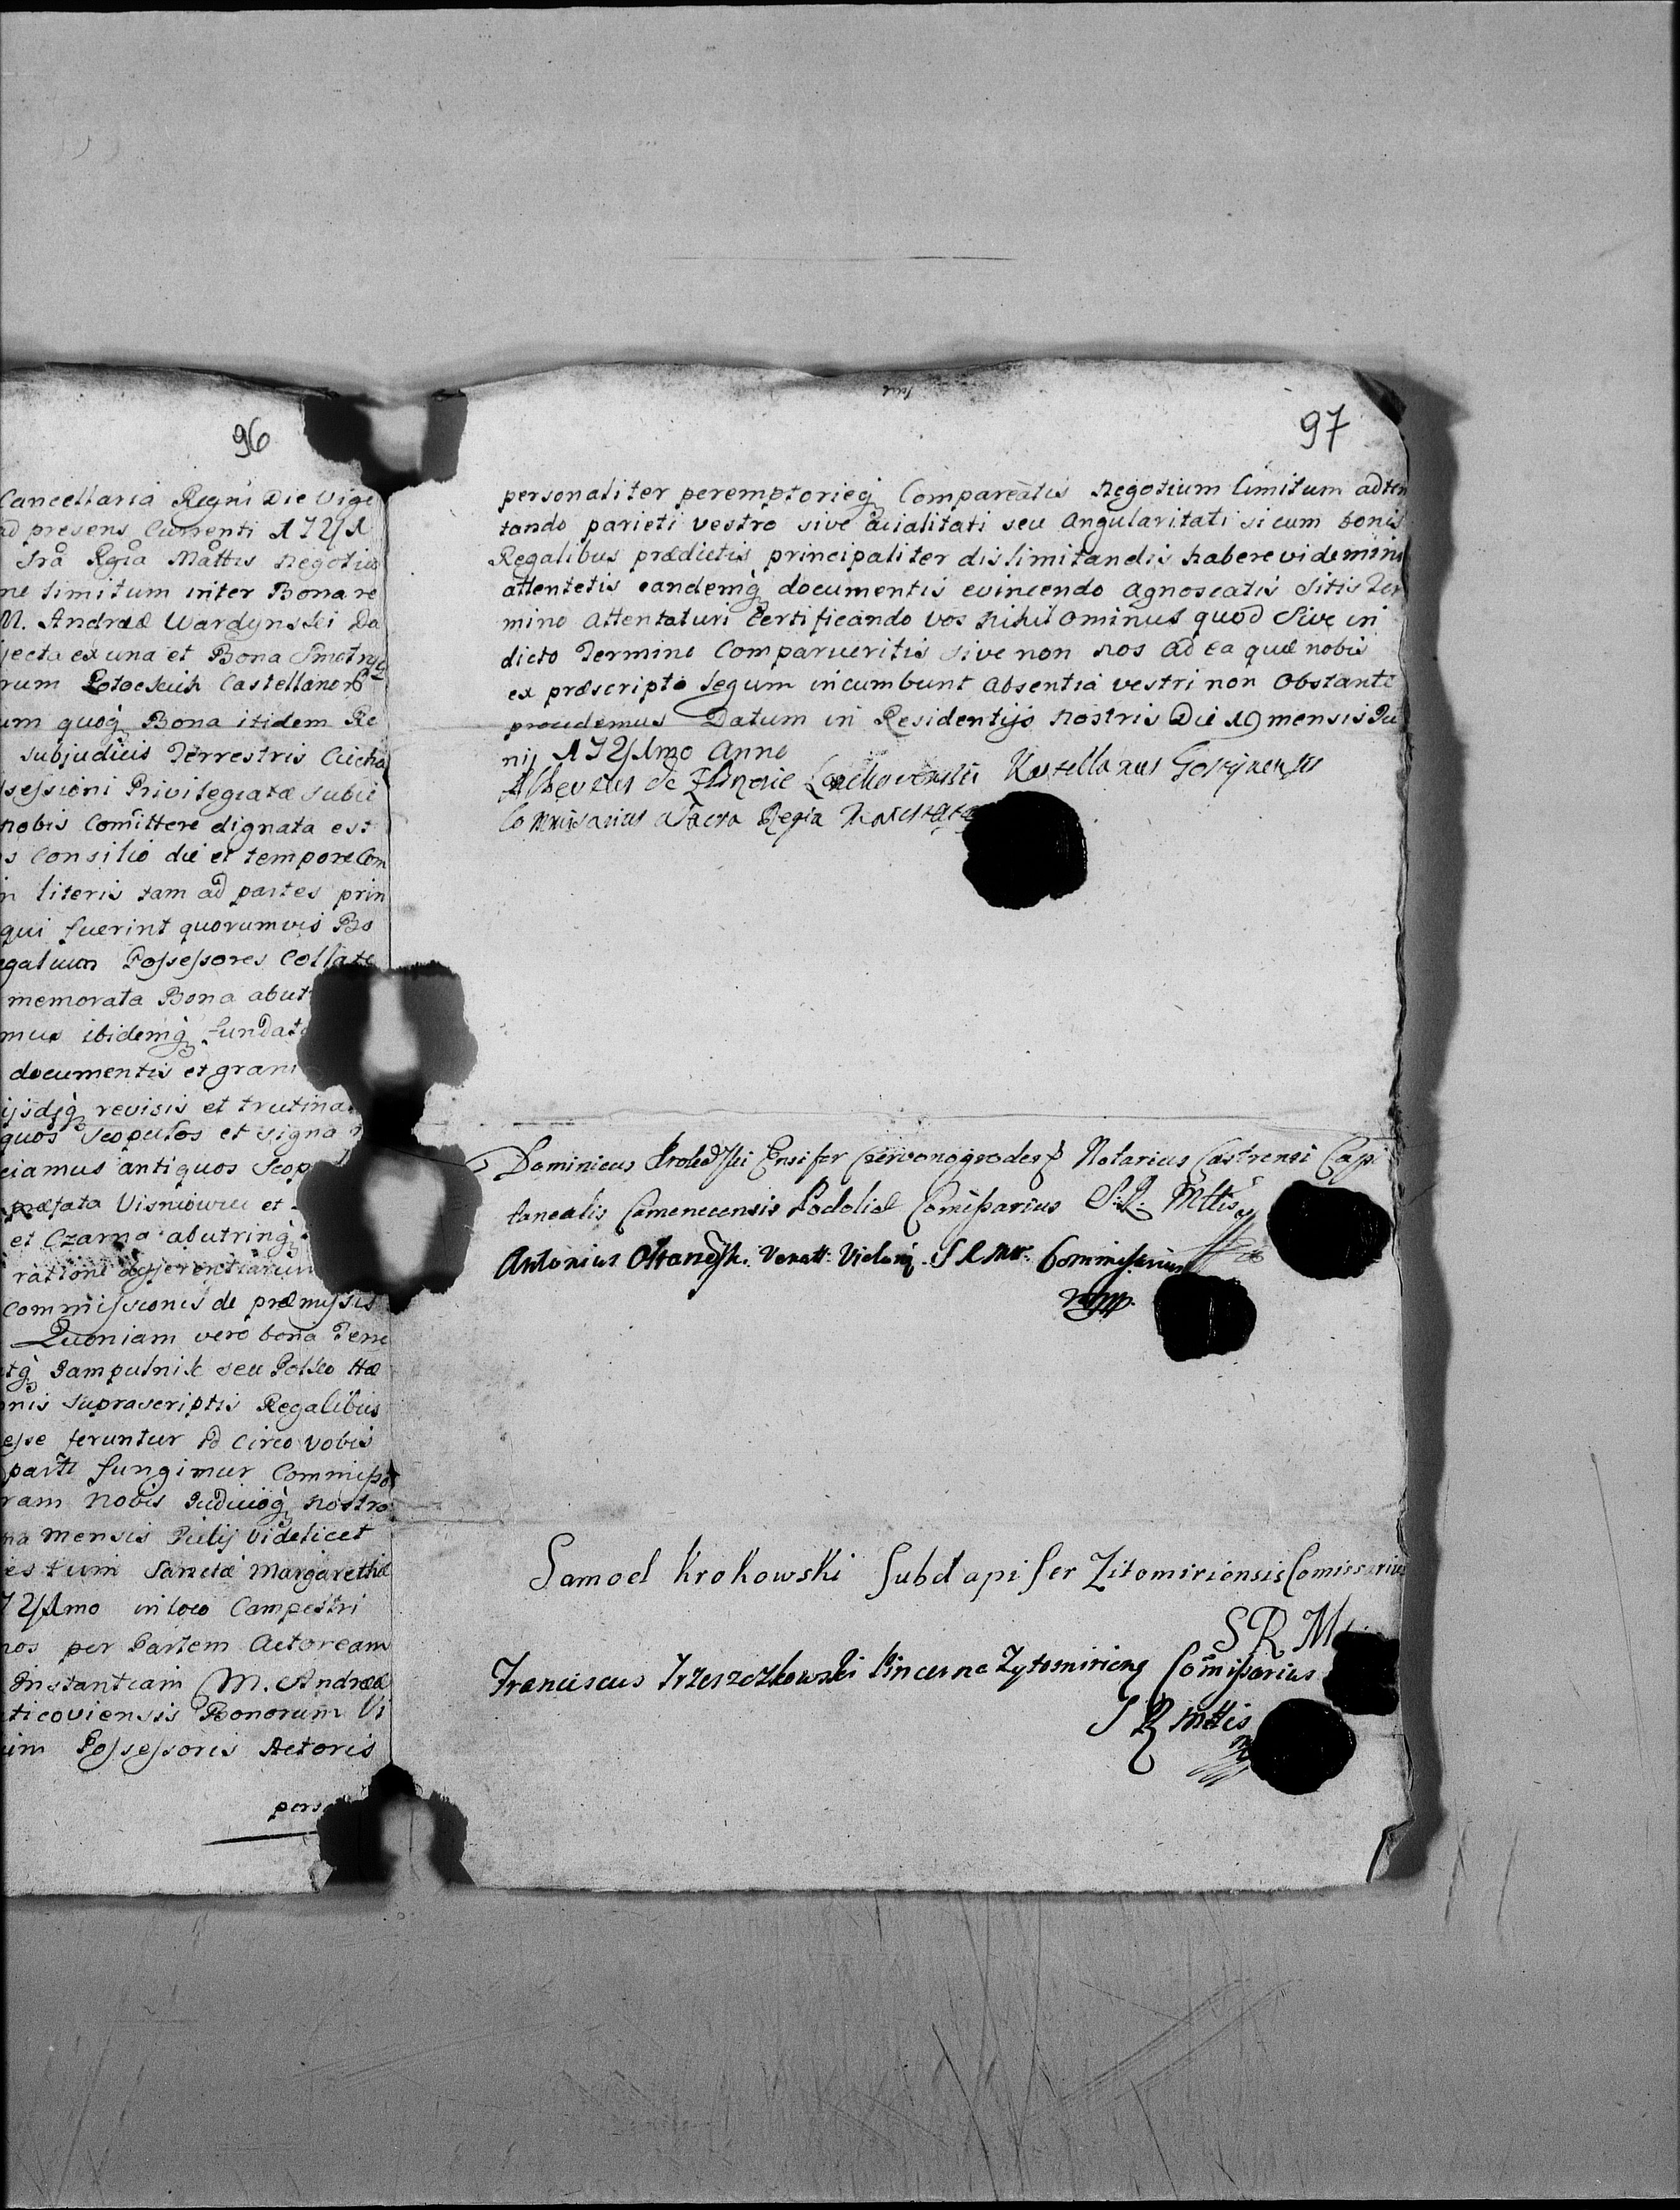 96
Cancellaria Regni Die Vige
ad presens Currenti 1721
Sra Rgia Mattis Negotiu
ne limitum inter Bona re
M. Andreæ Wardynski Da
jecta ex una et Bona Smotryc
rum Potockich Castellanor
um quoq Bona itidem Re
subjudicis Terrestris Czicho
ssessioni Privilegiatæ subie
nobis Comittere dignata est
s Consilio die et tempore Com
n literis tam ad partes prin
qui fuerint quorumvis Bo
egalium Possessores Collate
memorata Bona abut
mus ibidemq fundato
documentis et grani
ijsdq revisis et trutina
quos scopulos et signa
ciamus antiquos Scop
præfata Visniowiec et
et Czarna abutrinq
ratione differentiarum
Commissionis de præmissis
Quoniam vero bona Tene
tq Jampulnik seu
nis supra scriptis Regalibus
esse feruntur Id circo vobis
parte fungimur Commisso
ram Nobis Judicioq nostro
na mensis Julij videlicet
es tum Sanctæ Margarethæ
1721mo in loco Campestri
nos per Partem Actoream
Instantiam M. Andreæ
ticoviensis Bonorum Vi
um Possessoris Actoris
perso
97
personaliter peremptorieq Compareatis Negotium limitum adten
tando parieti vestro sive acialitati seu Angularitati si cum bonis
Regalibus prædictis principaliter dislimitandis habere videmini
attentetis eandemq documentis evincendo Agnoscatis sitis Ter
mino Attentaturi Certificando vos Nihilominus quod Sive in
dicto Termino Comparueritis sive non Nos ad ea quæ nobis
ex præscripto Legum incumbunt Absentia vestri non Obstante
procedemus Datum in Residentijs Nostris Die 19 mensis Ju
nij 1721mo Anno
de Kastellanus
Commissarius a Sacra Regia
Dominicus Ensifer Czervonogrodes Notarius Castrensi Capi
tanealis Camenecensis Podoliæ Comissarius S. R. Mttis
Antonius Venatt: S R Mtt. Commissarius
mpp
Samoel Krokowski Subdapifer Zitomiriensis Comissarius
S R M
Franciscus Trzeszczkowski Pincerna Zytomiriens Comissarius
S R Mttis